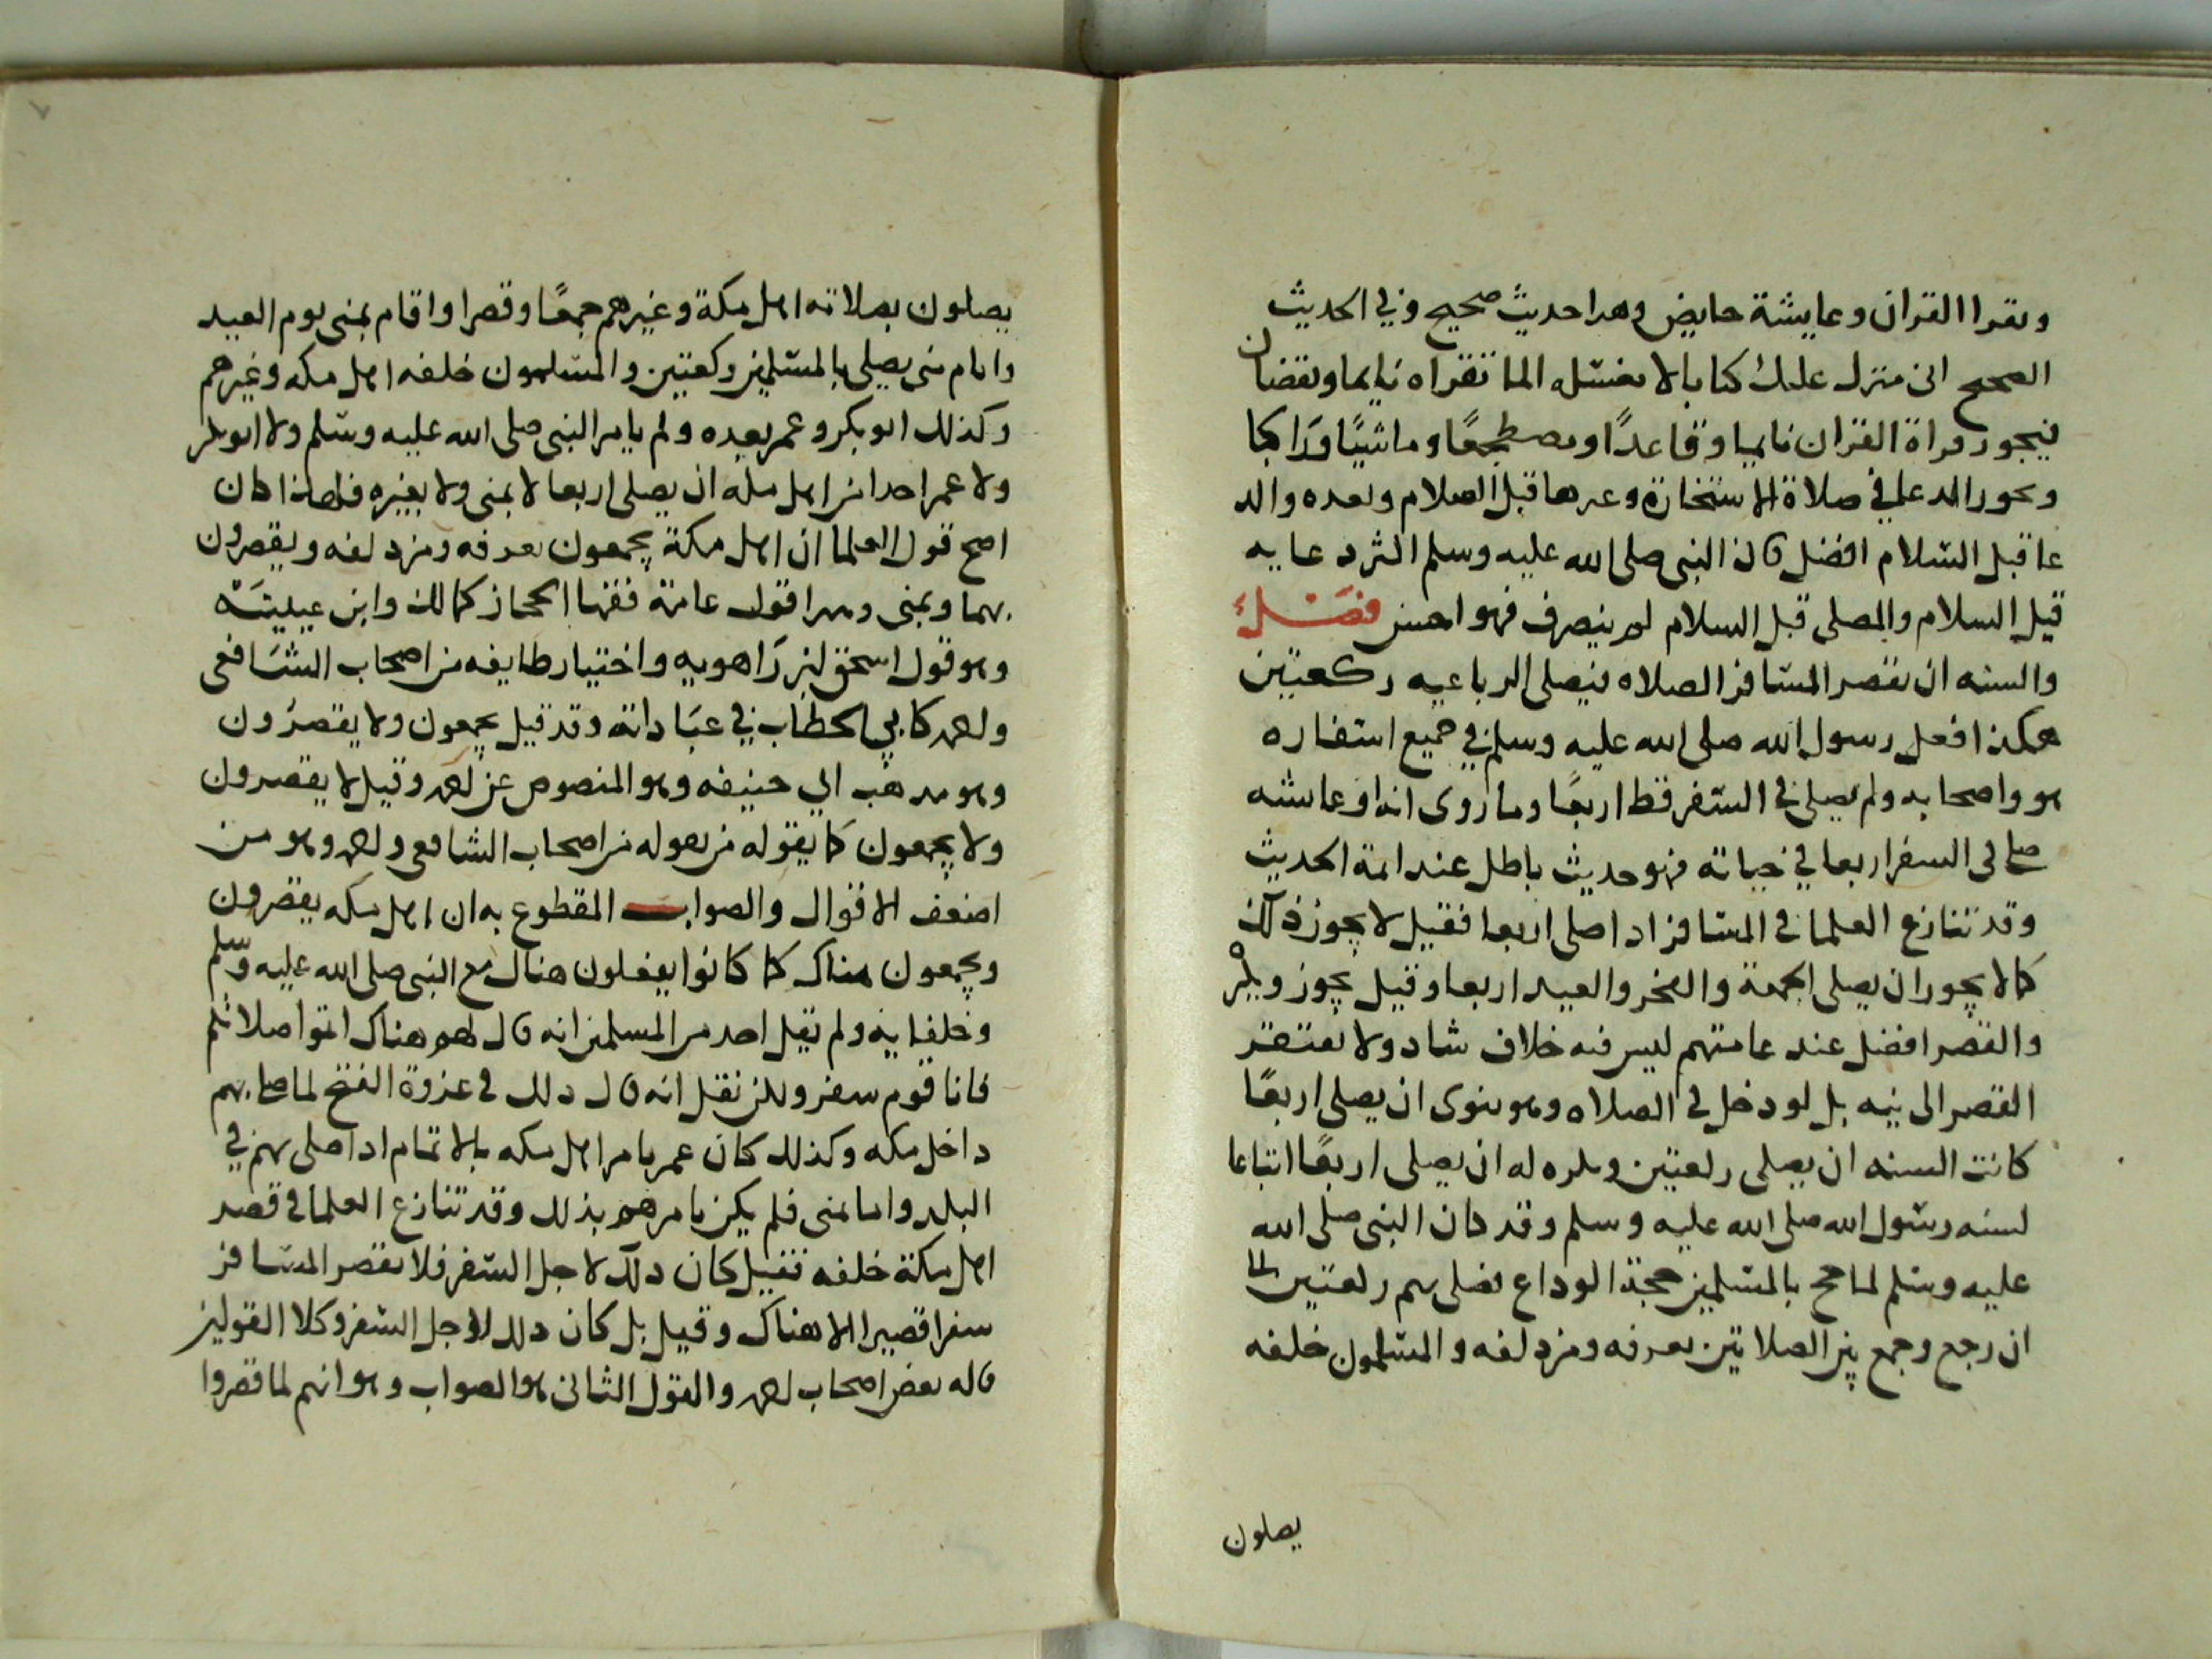 ويقرا القران وعايشة حايض وهدا حديث صحيح وفي الحديث
الصحيح انى منزل عليك كتابا لا يغسله الما تقراه نايما ويقضان
فيجوز قراة القران نايميا وقاعدًا ومصطجعًا وماشيًا وَراكبا
ويجوز الدعا في صلاة الاستخارة وغيرها قبل السلام وبعده والد
عا قبل السّلام افضل فان النبى صلى الله عليه وسلم اكثر دعايه
قبل السلام والمصلى قبل السلام لم ينصرف فهو احسن فصَــلٌ
والسنه ان يقصر المسَافر الصلاه فيصلى الرباعيه ركعتين
هكذا فعل رسول الله صلى الله عليه وسلم في جميع اسفاره
هو واصحابه ولم يصلى فى السّفر قط اربعًا وما روى انه او عايشه
صلى فى السفر اربعا في حياته فهو حديث باطل عند ايمة الحديث
وقد تنازع العلما فى المسَافر اذا صلى اربعا فقيل لا يجوز ذلك
كما لا يجوز ان يصلى الجمعة والفجر والعيد اربعا وقيل يجوز ويكره
والقصر افضل عند عامتهم ليس فيه خلاف شاد ولا يفتقر
القصر الى نيه بل لو دخل فى الصلاه وهو ينوى ان يصلى اربعًا
كانت السنه ان يصلى ركعتين ويكره له ان يصلى اربعًا اتباعا
لسنه رسّول الله صلى الله عليه وسلم وقد كان النبى صلى الله
عليه وسلم لما حج بالمسّلمين حجة الوداع يصلى بهم ركعتين الى
ان رجع وجمع بين الصلاتين بعرفه ومزدلفه والمسّلمون خلفه
يصلون
يصلون بصلاته اهل مكة وغيرهم جمعًا وقصرا واقام بمنى يوم العيد
وايام منى يصلى بالمسّلمين ركعتين والمسّلمون خلفه اهل مكه وغيرهم
وكذلك ابو بكر وعمر بعده ولم يامر النبى صلى الله عليه وسّلم ولا ابو بكر
ولا عمر احدا من اهل مكة ان يصلى اربعا لا بمنى ولا بغيره فلهذا كان
اصح قول العلما ان اهل مكة يجمعون بعرفه ومزدلفه ويقصرون
بهما وبمنى وهدا قول عامة فقها الحجاز كمالك وابن عيينَة
وهو قول اسحق بن رَاهويه واختيار طايفه من اصحاب الشَافعى
واحمد كابي الخطاب في عبَاداته وقد قيل يجمعون ولا يقصرُون
وهو مدهب ابي حنيفه وهو المنصوص عن احمد وقيل لا يقصرون
ولا يجمعون كما يقوله من يقوله من اصحاب الشافعى واحمد وهو من
اضعف الاقوال والصواب المقطوع به ان اهل مكه يقصرون
ويجمعون هناك كما كانوا يفعلون هناك مع النبى صلى الله عليه وسّلم
وخلفايه ولم يقل احد من المسلمين انه قال لهم هناك اتموا صلاتكم
فانا قوم سفر ولكن نقل انه قال دلك فى غزوة الفتح لما صلى بهم
داخل مكه وكذلك كان عمر يامر اهل مكه بالاتمام ادا صلى بهم في
البلد واما بمنى فلم يكن يامرهم بذلك وقد تنازع العلما فى قصر
اهل مكة خلفه فقيل كان دلك لاجل السّفر فلا يقصر المسَافر
سفرا قصيرا الا هناك وقيل بل كان دلك لاجل السّفر وكلا القولين
قاله بعض اصحاب احمد والقول الثانى هو الصواب وهو انهم لما قصروا